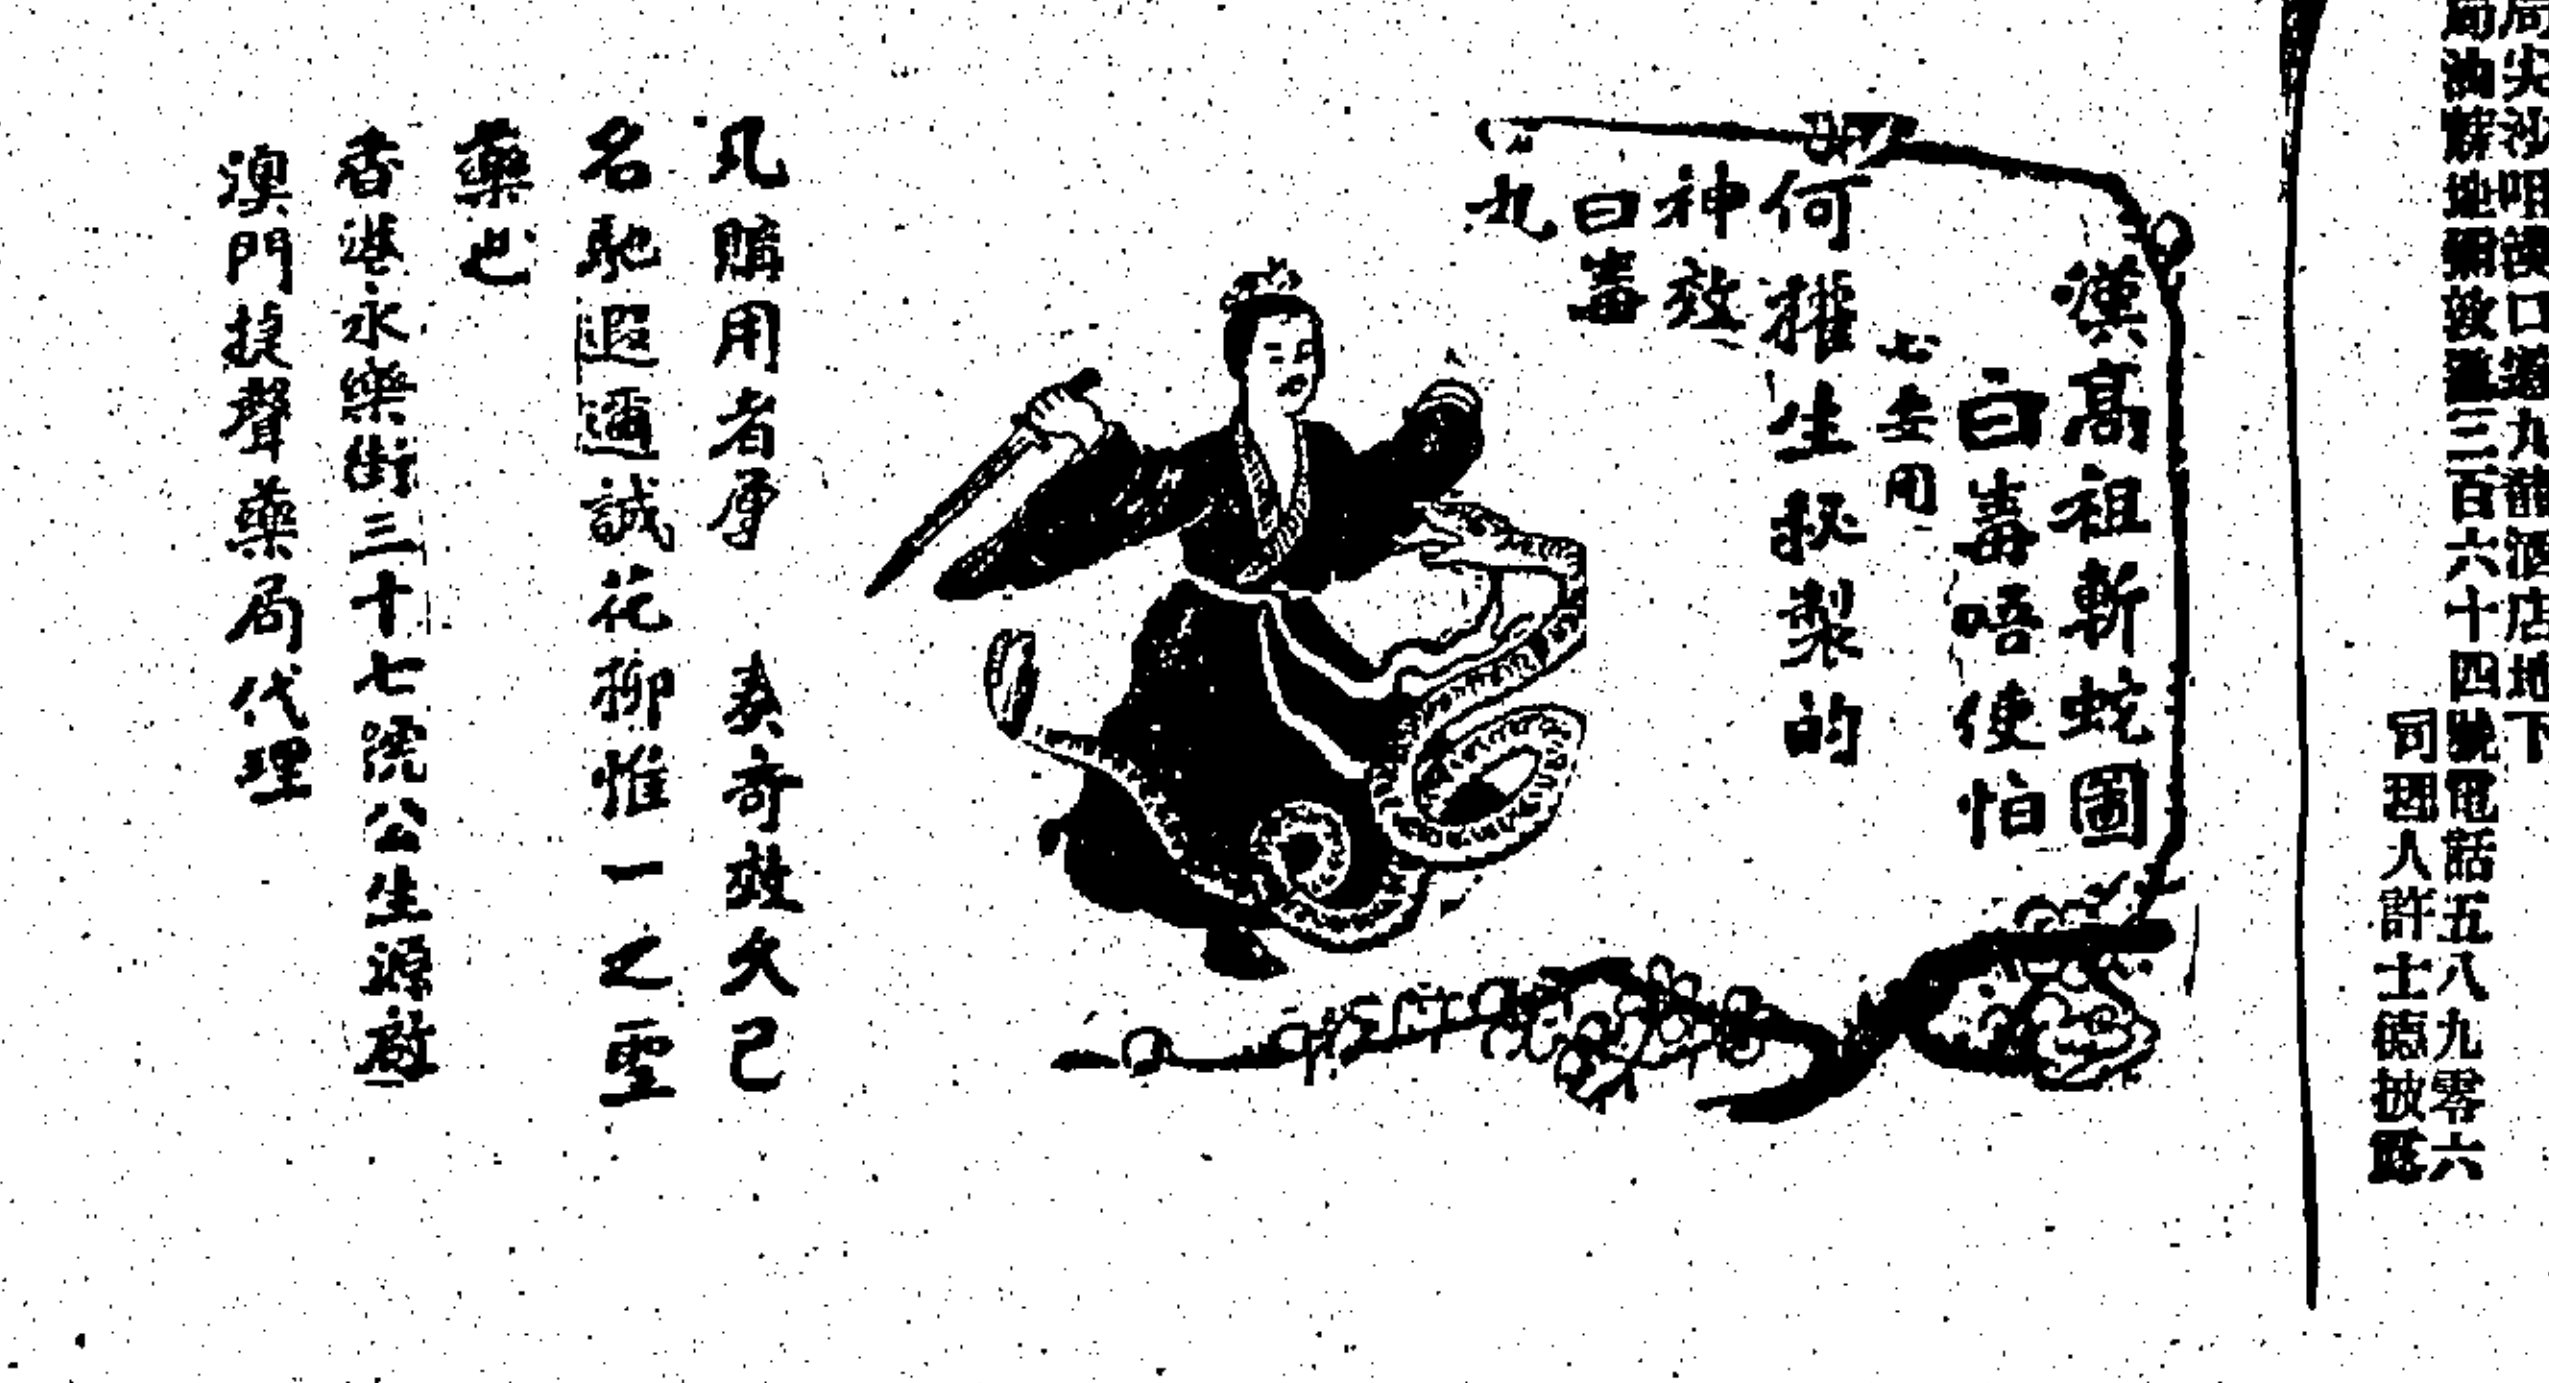 局尖沙咀漢口道九龍酒店地下
局油蔴地彌敦道三百六十四號電話五八九零六
司理人許士德披露
漢高祖斬蛇圖
白毒唔使怕
必要用
何權生秘製的
神效
白毒
丸
凡購用者 奏奇效久已
名馳遐邇誠花柳惟一之聖
藥也
香港永樂街三十七號公生源啟
澳門捷聲藥局代理